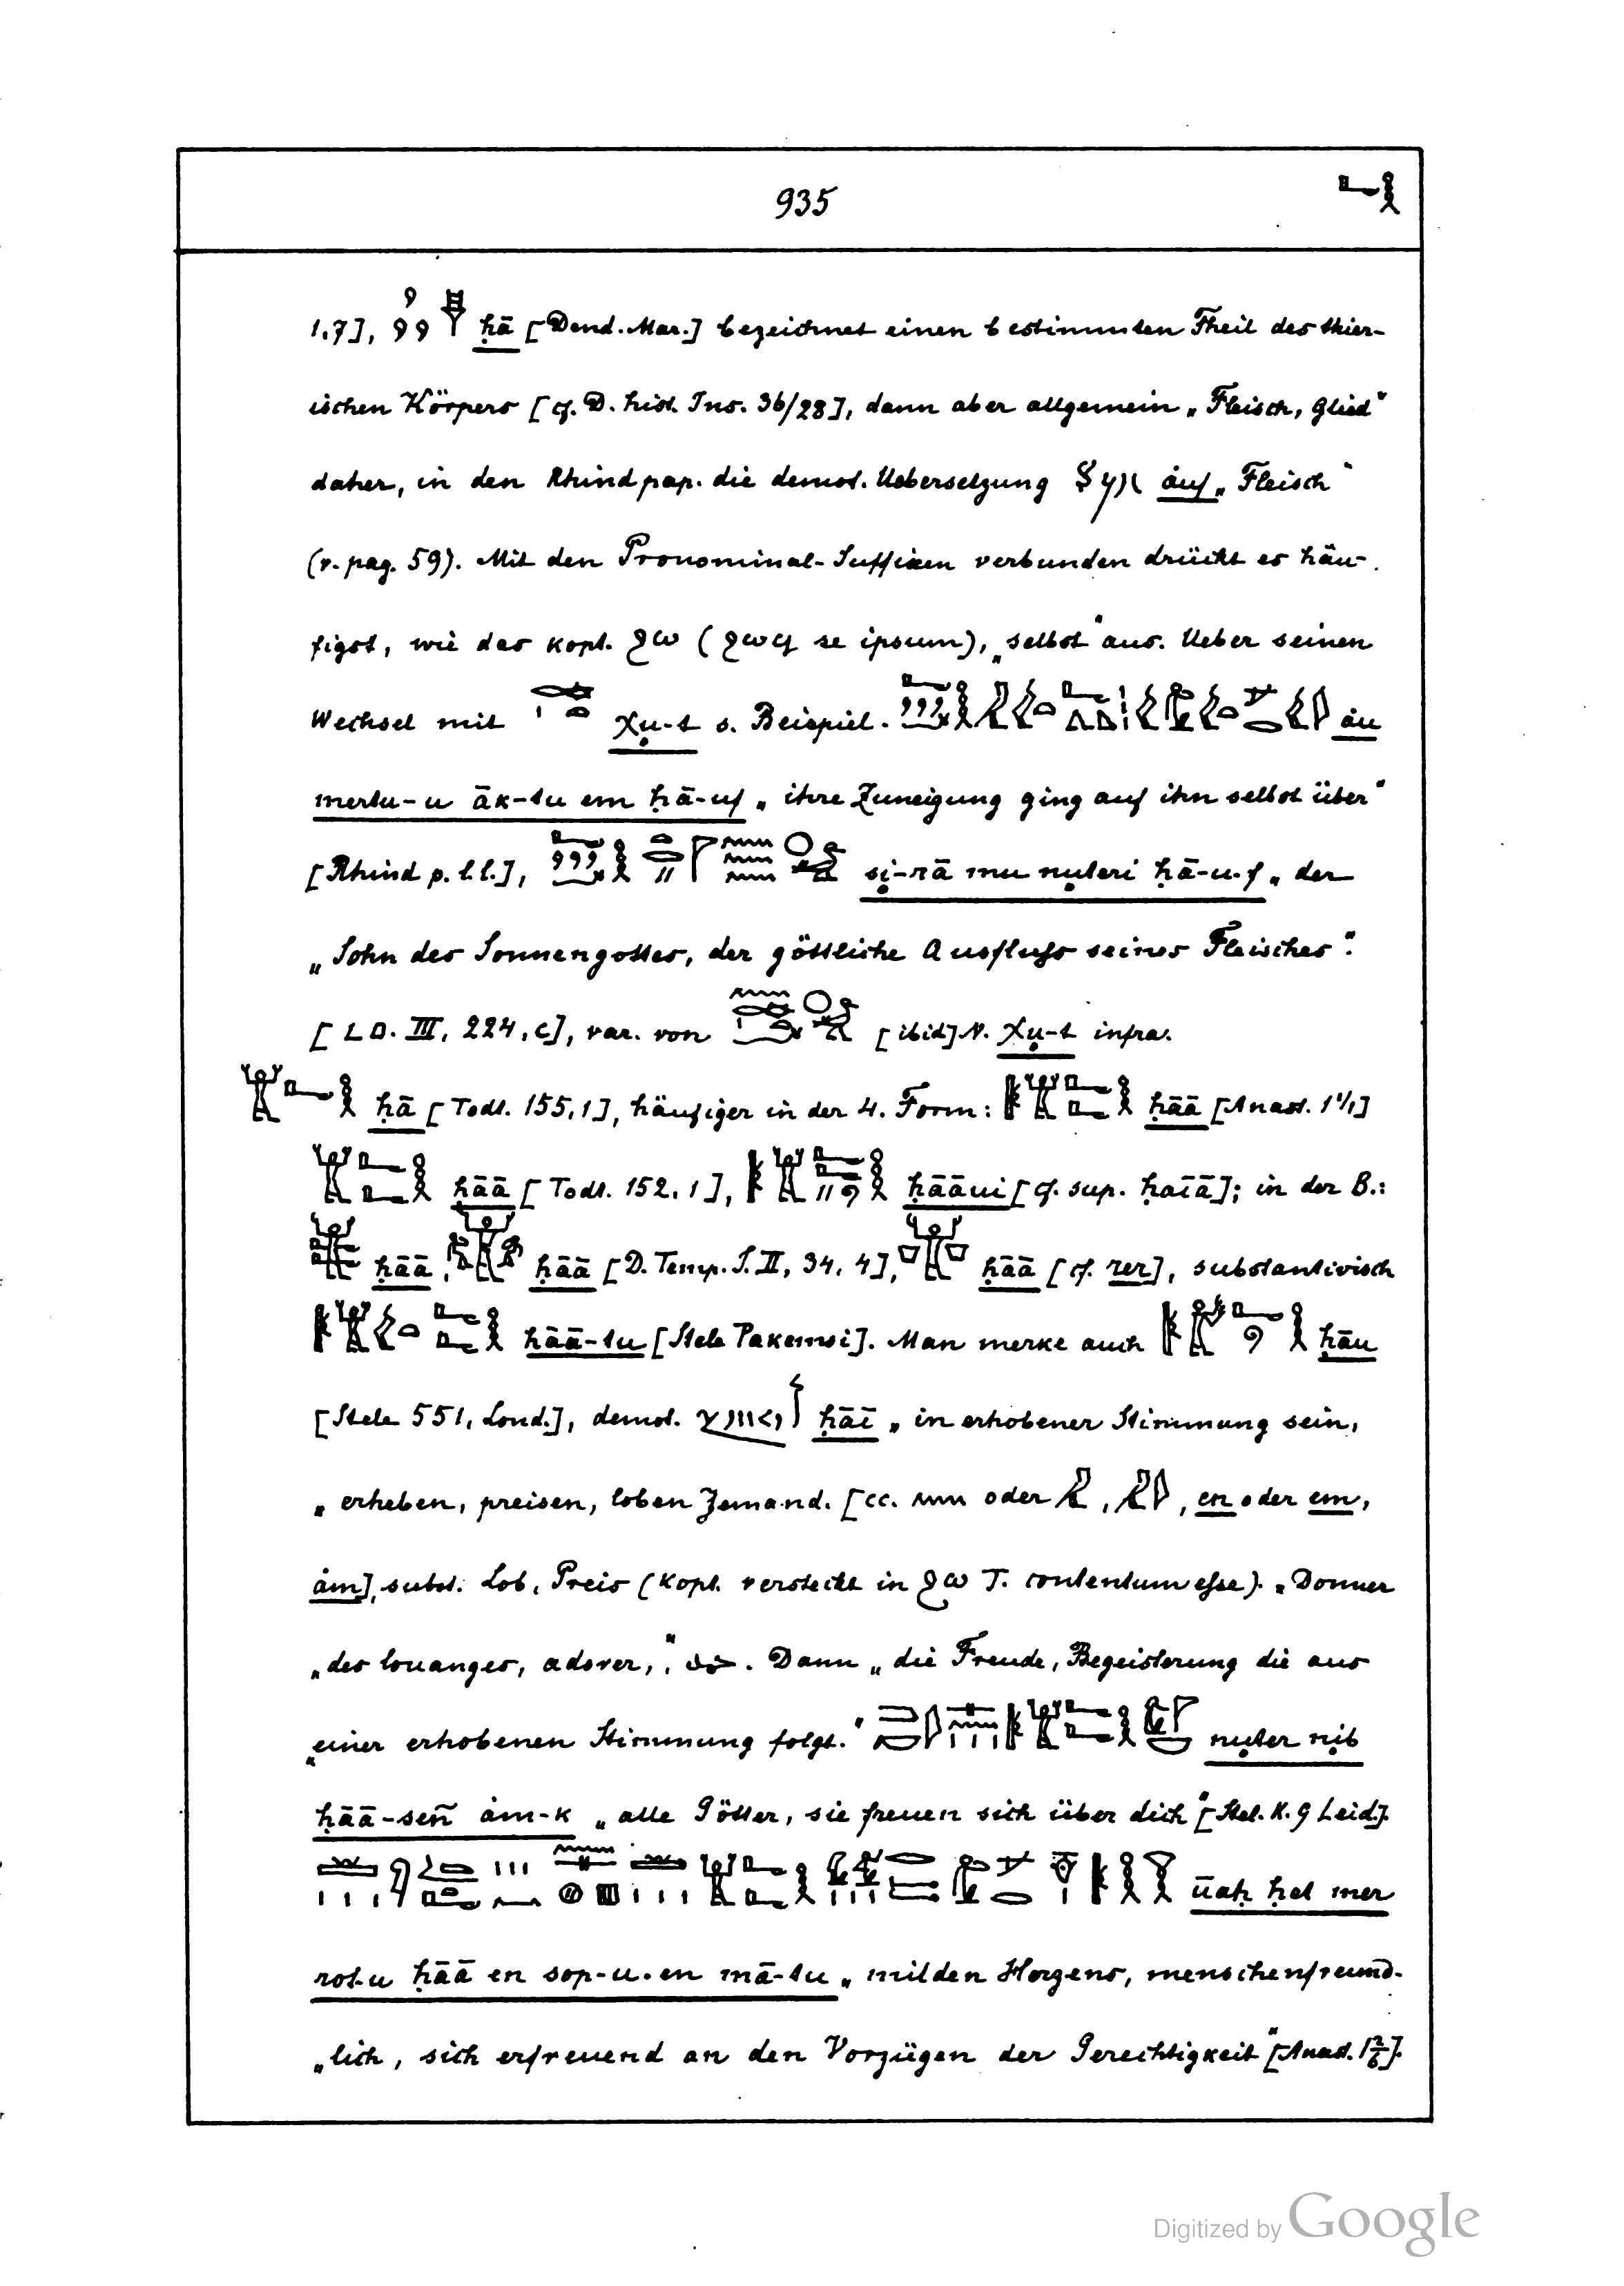 935
1.7], ḥā [Dend. Mar.] bezeichnet einen bestimmten Theil des thier-
ischen Körpers [cf. D. hist. Ins. 36/28], dann aber allgemein „Fleisch, Glied"
daher, in den Rhind pap. die demot. Uebersetzung áuf „Fleisch"
(v. pag. 59). Mit den Pronominal-Suffixen verbunden drückt es häu-
figst, wie das kopt. ϩⲱ (ϩⲱϥ se ipsum), „selbst" aus. Ueber seinen
Wechsel mit χu-t s. Beispiel. áu
mertu-u āk-tu em ḥā-uf „ihre Zuneigung ging auf ihn selbst über"
[Rhind p. l.l.], si-rā mu nuteri ḥā-u-f „der
„Sohn des Sonnengottes, der göttliche Ausfluss seines Fleisches".
[LD. III, 224, c], var. von [ibid] v. χu-t infra.
ḥā [Todt. 155,1], häufiger in der 4. Form: ḥāā [Anast. 1 1/1]
ḥāā [Todt. 152,1], ḥāāui [cf. sup. ḥaīā]; in der B.:
ḥāā, ḥāā [D. Temp. I. II, 34, 4], ḥāā [cf. rer], substantivisch
ḥāā-tu [Stele Pakemsi]. Man merke auch ḥāu
[Stele 551, Lond.], demot. ḥāī „in erhobener Stimmung sein,
„erheben, preisen, loben Jemand. [cc. oder , , en oder em,
ám], subst. Lob, Preis (kopt. versteckt in ϩⲱ T. contentum esse). „Donner
„des louanges, adorer," . Dann „die Freude, Begeisterung die aus
„einer erhobenen Stimmung folgt." nuter nib
ḥāā-sen ám-k „alle Götter, sie freuen sich über dich" [Stel. K. 9 Leid.].
ūaḥ ḥet mer
rot-u ḥāā en sop-u-en mā-tu „milden Herzens, menschenfreund-
„lich, sich erfreuend an den Vorzügen der Gerechtigkeit" [Anast. 1 2/6].
Digitized by Google